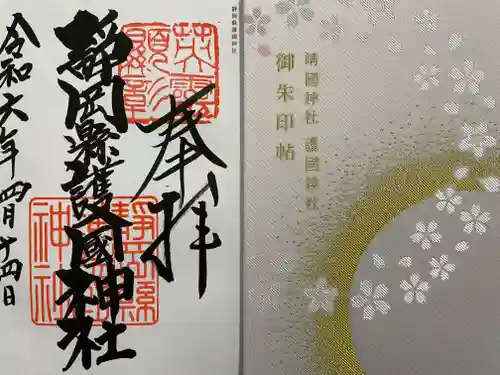 奉拝
靜岡縣護國神社
令和六年四月十四日
英霊
顕彰
靜岡縣
護國
神社
靜岡縣護國神社
靖國神社 護國神社
御朱印帖